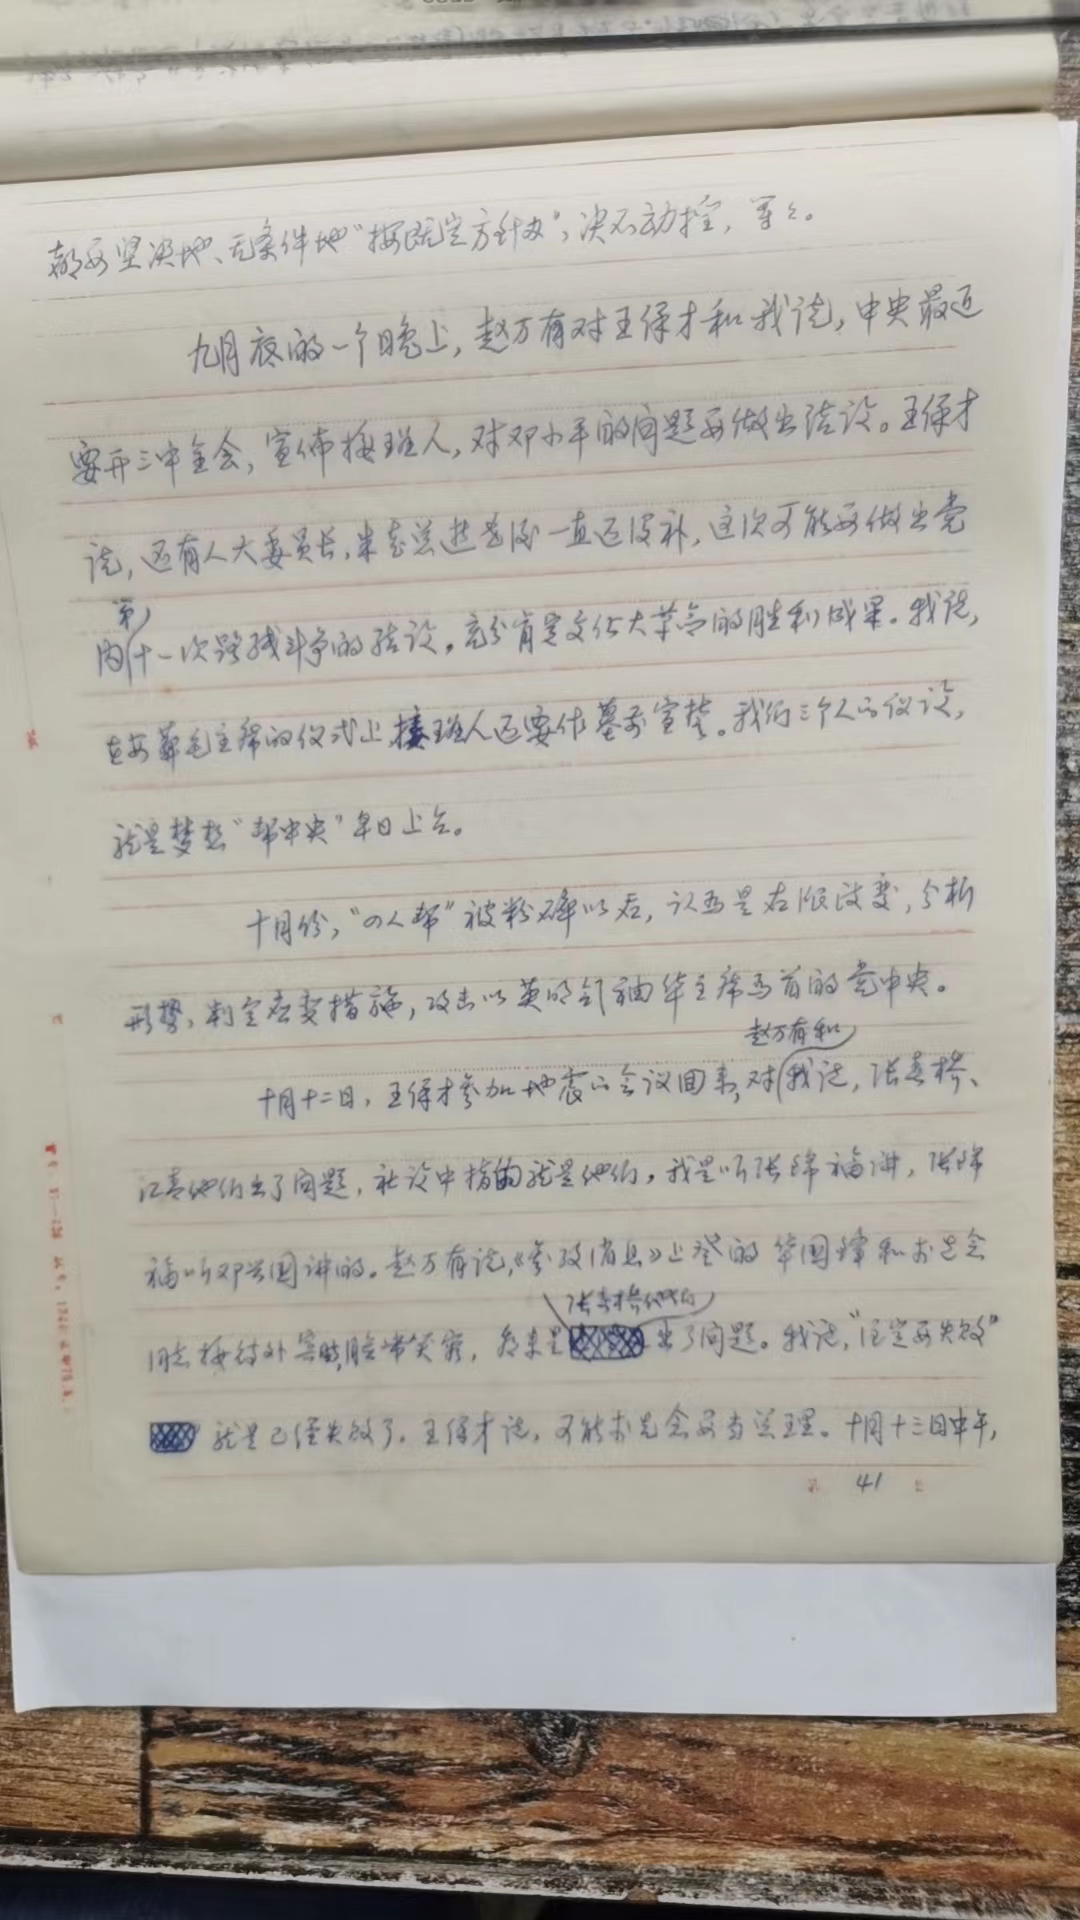 都要坚决地、无条件地“按既定方针办”,决不动摇,等々。
九月底的一个晚上,赵万有对王保才和我说,中央最近
要开三中全会,宣佈接班人,对邓小平的问题要做出结论。王保才
说,还有人大委员长,朱老总逝世后一直还没补,这次可能要做出党
内第十一次路线斗争的结论。充分肯定文化大革命的胜利成果。我说,
在安葬毛主席的仪式上,接班人还要作墓前宣誓。我们三个人的议论,
就是梦想“帮中央”早日上台。
十月份,“四人帮”被粉碎以后,认为是右派政变,分析
形势,制定应变措施,攻击以英明领袖华主席为首的党中央。
十月十二日,王保才参加地震的会议回来,对赵万有和我说,张春桥、
江青他们出了问题,社论中指的就是他们,我是听张锦福讲,张锦
福听邓兴国讲的。赵万有说,《参考消息》上登的华国锋和李先念
同志接待外宾时,脸带笑容,原来是张春桥他们出了问题。我说,“注定要失败”
就是已经失败了。王保才说,可能李先念要当总理。十月十三日中午,
第 41 页